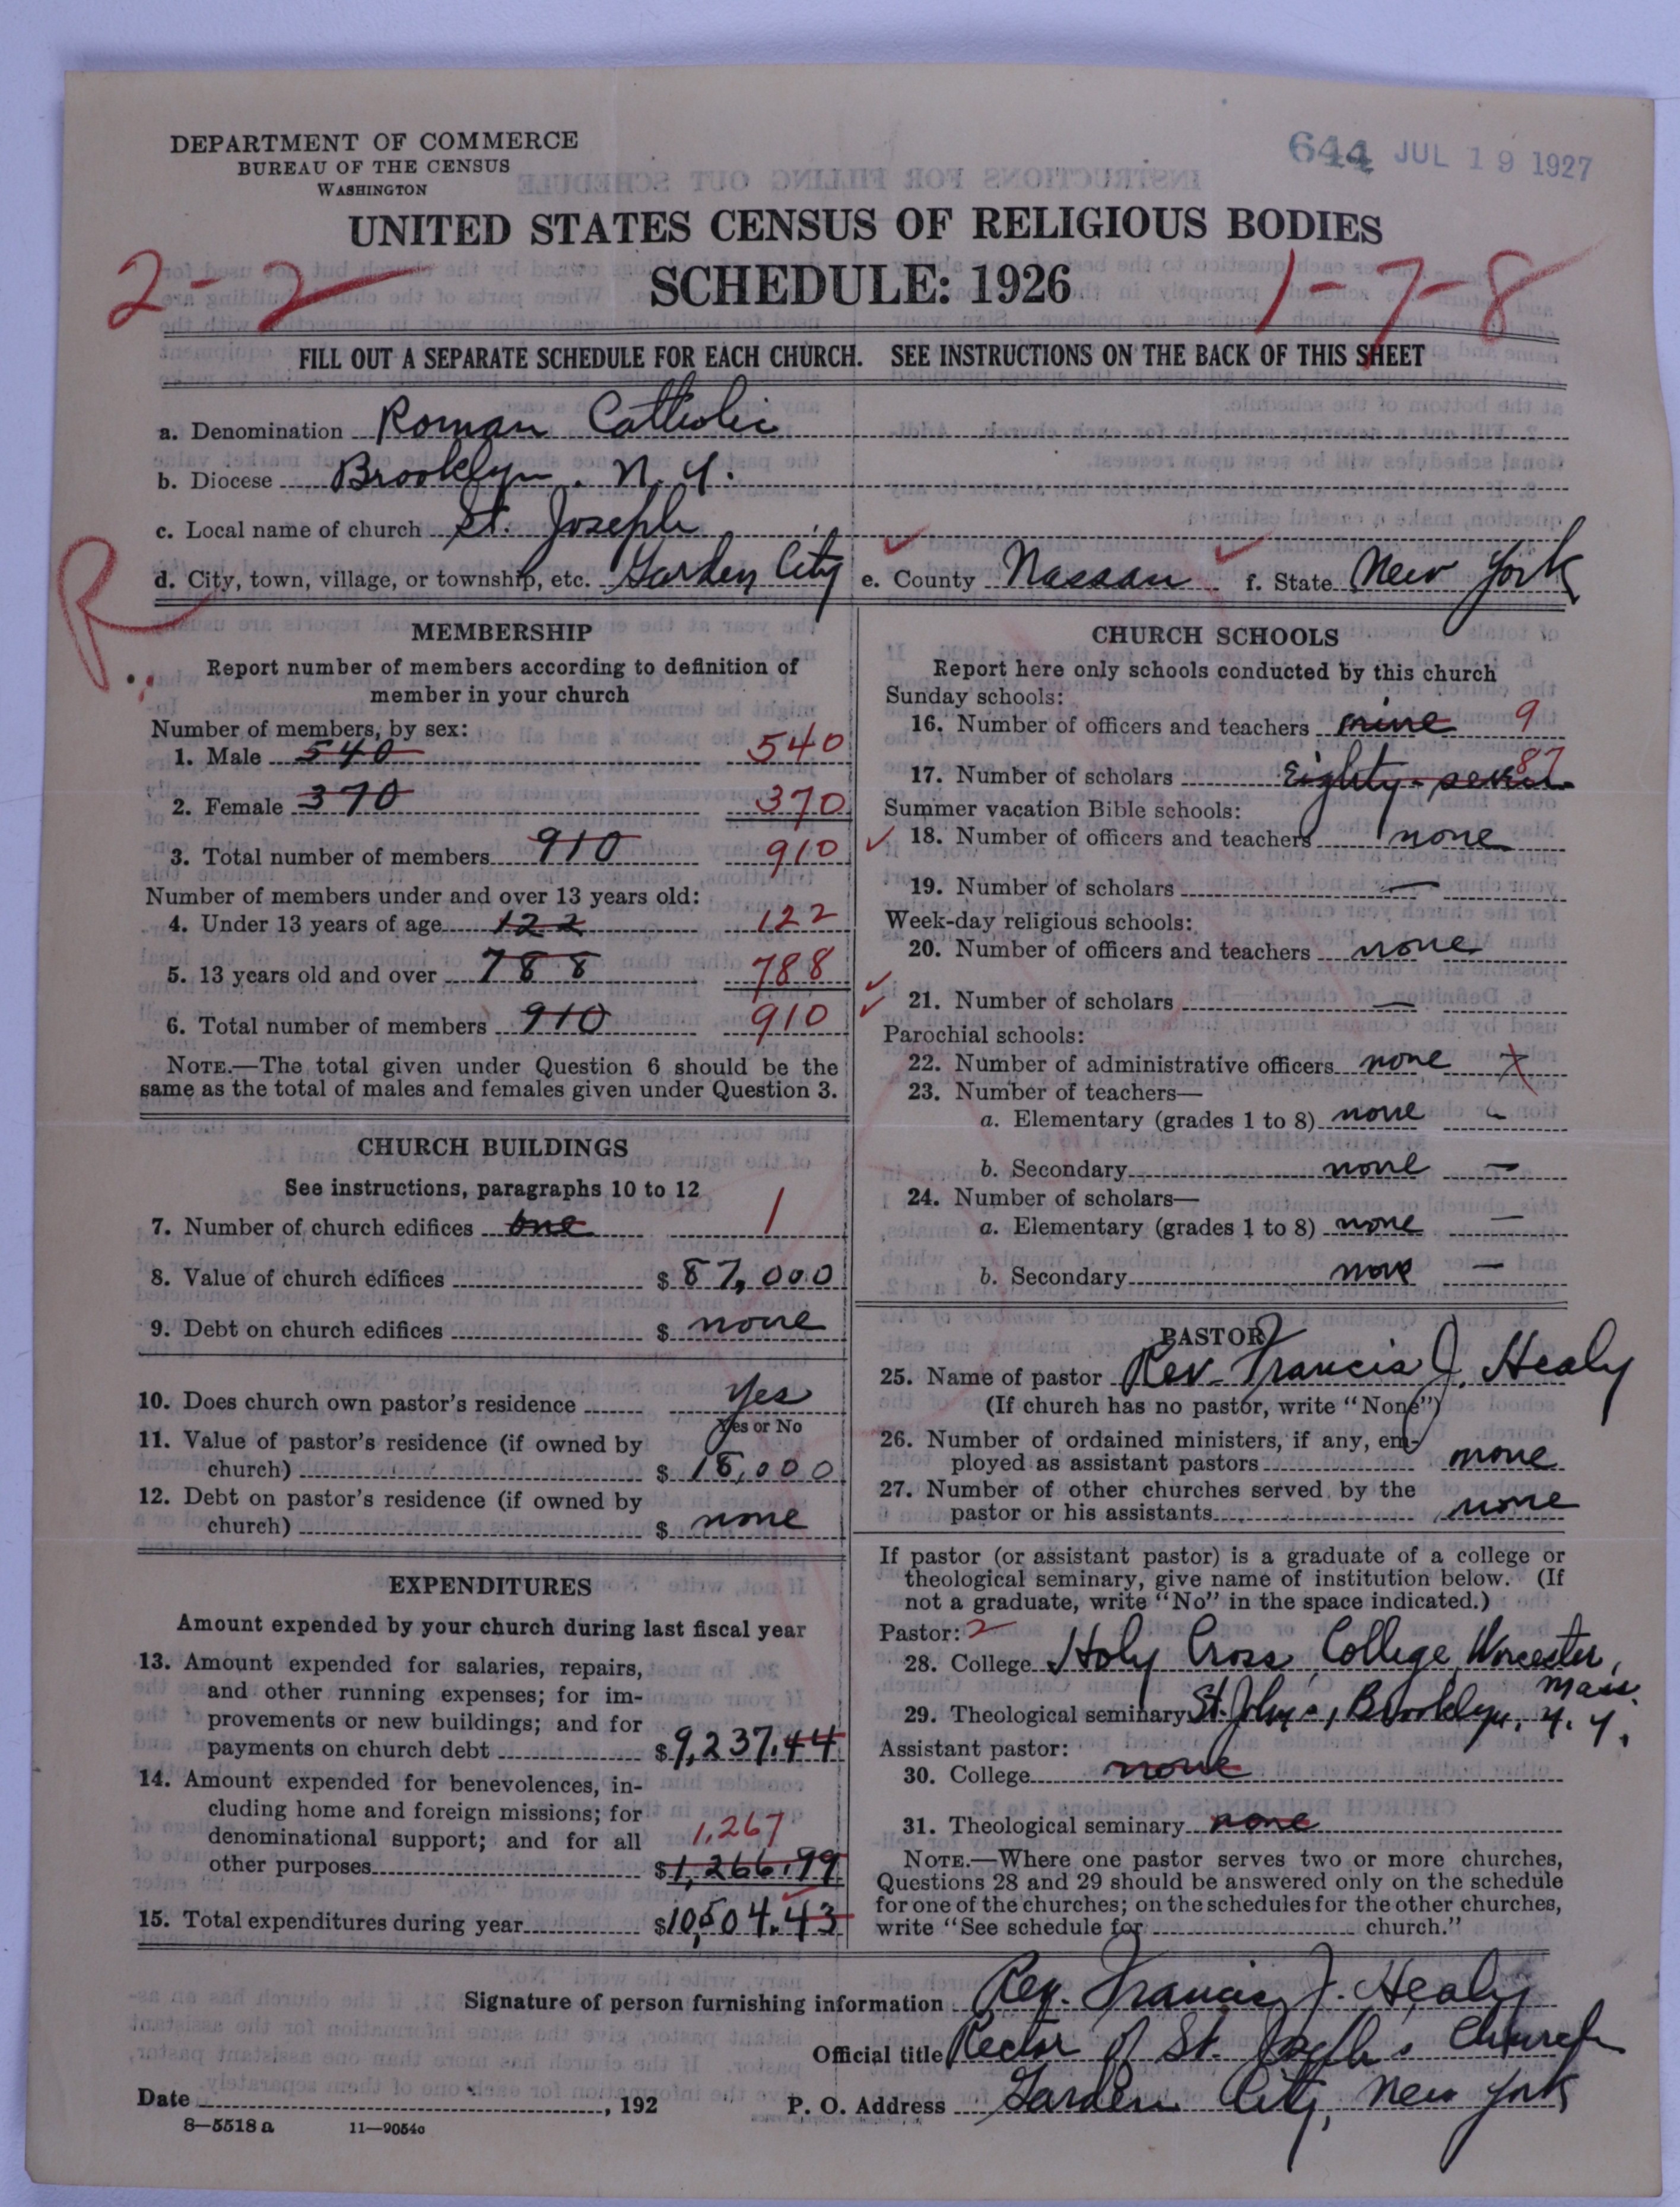 DEPARTMENT OF COMMERCE
BUREAU OF THE CENSUS
WASHINGTON
644 JUL 19 1927
UNITED STATES CENSUS OF RELIGIOUS BODIES
2-2
SCHEDULE: 1926
1-7-8
FILL OUT A SEPARATE SCHEDULE FOR EACH CHURCH. SEE INSTRUCTIONS ON THE BACK OF THIS SHEET
a. Denomination Roman Catholic
b. Diocese Brooklyn. N.Y.
c. Local name of church St. Joseph
d. City, town, village, or township, etc. Garden City e. County Nassau f. State New York
R
MEMBERSHIP
Report number of members according to definition of
member in your church
Number of members, by sex:
1. Male 540 540
2. Female 370 370
3. Total number of members 910 910
Number of members under and over 13 years old:
4. Under 13 years of age 122 122
5. 13 years old and over 788 788
6. Total number of members 910 910
NOTE.—The total given under Question 6 should be the
same as the total of males and females given under Question 3.
CHURCH BUILDINGS
See instructions, paragraphs 10 to 12
7. Number of church edifices one 1
8. Value of church edifices $ 87,000
9. Debt on church edifices $ none
10. Does church own pastor's residence Yes
Yes or No
11. Value of pastor's residence (if owned by
church) $ 18,000
12. Debt on pastor's residence (if owned by
church) $ none
EXPENDITURES
Amount expended by your church during last fiscal year
13. Amount expended for salaries, repairs,
and other running expenses; for im-
provements or new buildings; and for
payments on church debt $ 9,237.44
14. Amount expended for benevolences, in-
cluding home and foreign missions; for
denominational support; and for all 1,267
other purposes $ 1,266.99
15. Total expenditures during year $ 10,504.43
CHURCH SCHOOLS
Report here only schools conducted by this church
Sunday schools:
16. Number of officers and teachers nine 9
17. Number of scholars Eighty-seven 87
Summer vacation Bible schools:
18. Number of officers and teachers none
19. Number of scholars —
Week-day religious schools:
20. Number of officers and teachers none
21. Number of scholars —
Parochial schools:
22. Number of administrative officers none
23. Number of teachers—
a. Elementary (grades 1 to 8) none -
b. Secondary none —
24. Number of scholars—
a. Elementary (grades 1 to 8) none —
b. Secondary none —
PASTOR
25. Name of pastor Rev. Francis J. Healy
(If church has no pastor, write "None")
26. Number of ordained ministers, if any, em-
ployed as assistant pastors none
27. Number of other churches served by the
pastor or his assistants none
If pastor (or assistant pastor) is a graduate of a college or
theological seminary, give name of institution below. (If
not a graduate, write "No" in the space indicated.)
Pastor: 2
28. College Holy Cross College, Worcester,
Mass.
29. Theological seminary St. John's, Brooklyn, N.Y.
Assistant pastor:
30. College none
31. Theological seminary none
NOTE.—Where one pastor serves two or more churches,
Questions 28 and 29 should be answered only on the schedule
for one of the churches; on the schedules for the other churches,
write "See schedule for church."
Signature of person furnishing information Rev. Francis J. Healy
Official title Rector of St. Joseph's Church
Date , 192 P. O. Address Garden City, New York
8—5518 a 11—9054c